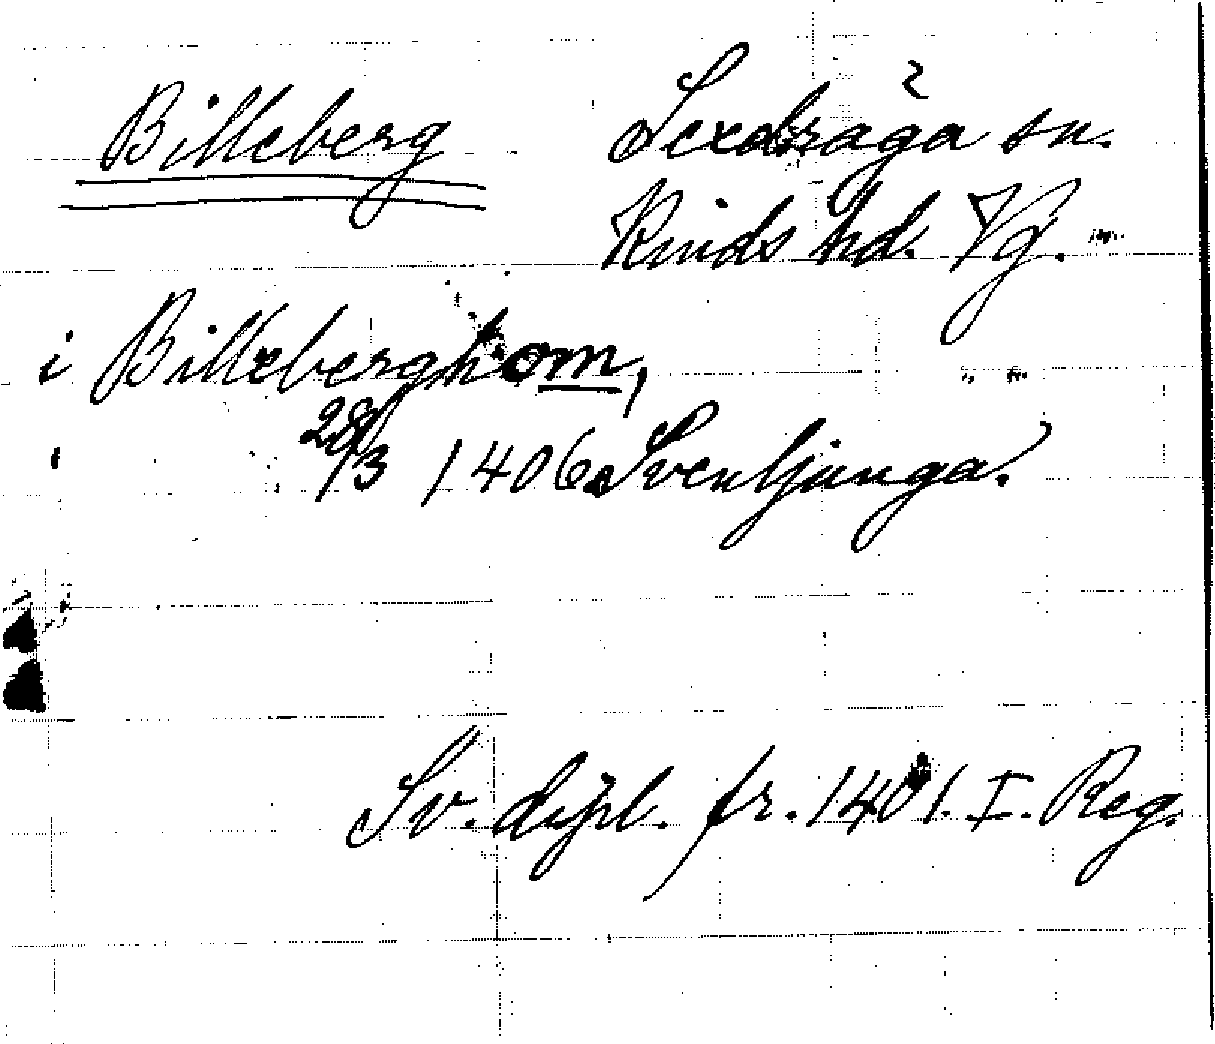 Billeberg Sexdräga sn.
Kinds hd. Vg.
i Billeberghom,
28/3 1406. Svenljunga.
Sv. dipl. fr. 1401. I. Reg.